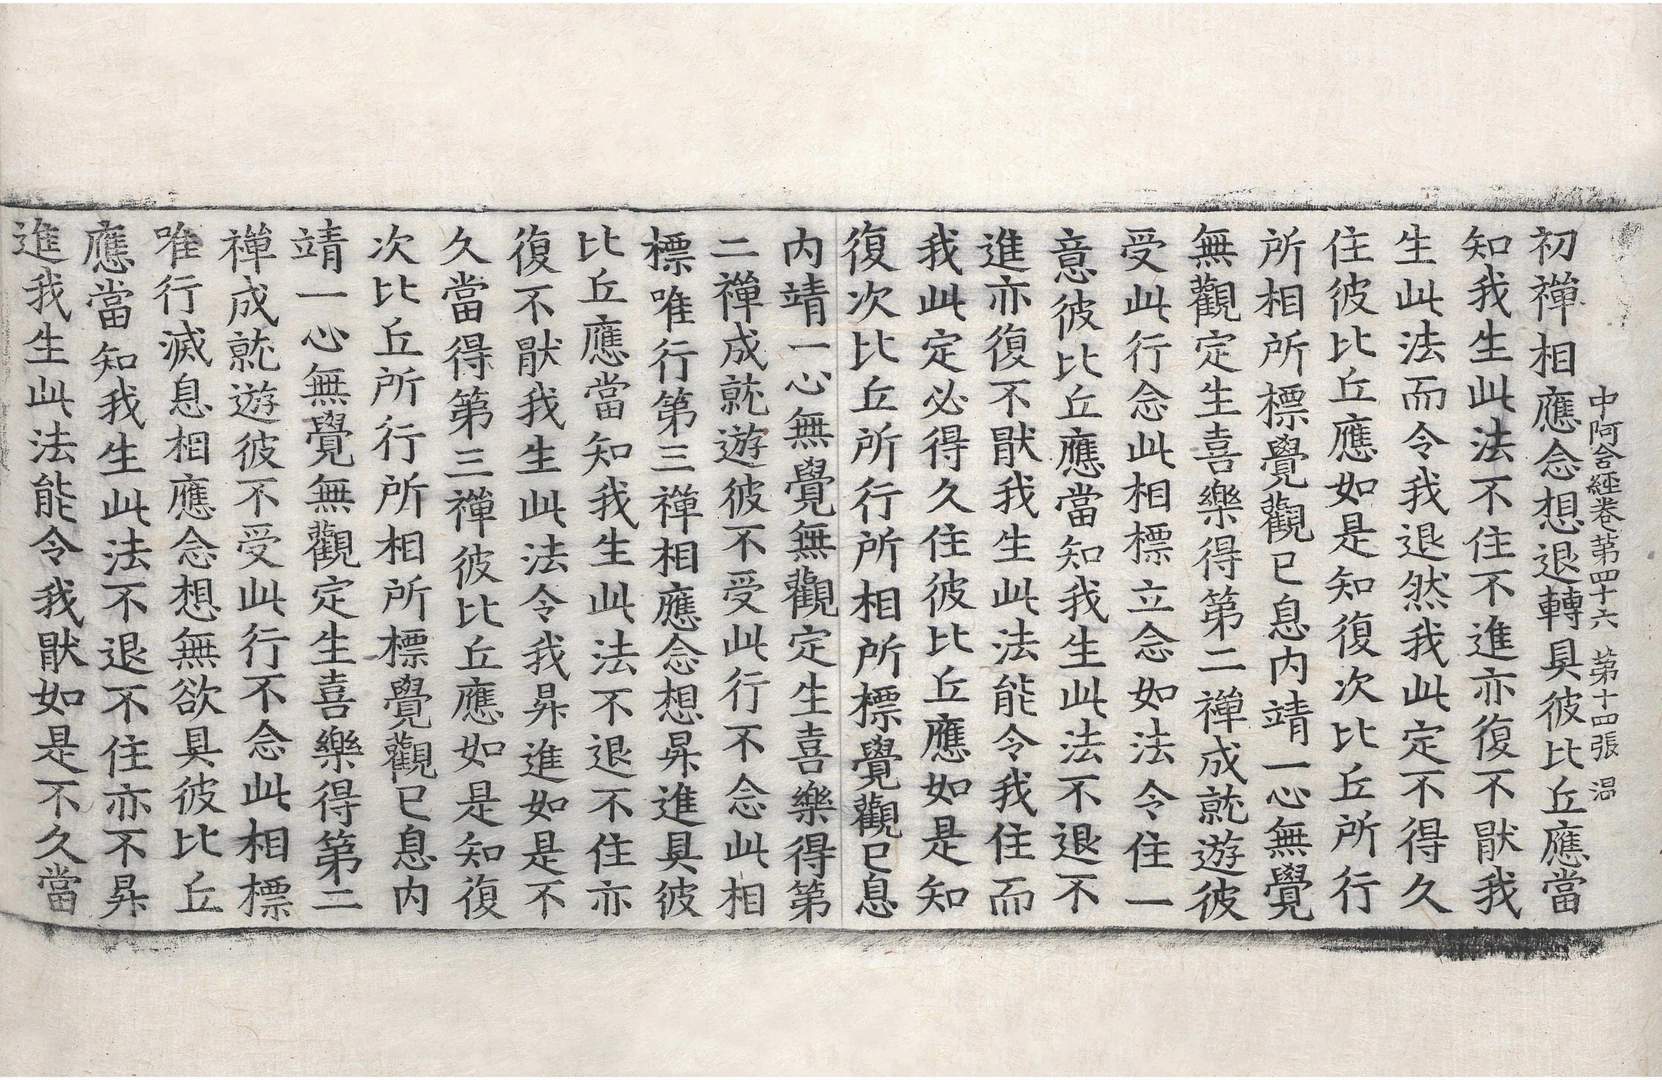 中阿含經卷第四十六　第十四張　温
初禪相應念想退轉具彼比丘應當
知我生此法不住不進亦復不猒我
生此法而令我退然我此定不得久
住彼比丘應如是知復次比丘所行
所相所標覺觀已息内靖一心無覺
無觀定生喜樂得第二禪成就遊彼
受此行念此相標立念如法令住一
意彼比丘應當知我生此法不退不
進亦復不猒我生此法能令我住而
我此定必得久住彼比丘應如是知
復次比丘所行所相所標覺觀已息
内靖一心無覺無觀定生喜樂得第
二禪成就遊彼不受此行不念此相
標唯行第三禪相應念想昇進具彼
比丘應當知我生此法不退不住亦
復不猒我生此法令我昇進如是不
久當得第三禪彼比丘應如是知復
次比丘所行所相所標覺觀已息内
靖一心無覺無觀定生喜樂得第二
禪成就遊彼不受此行不念此相標
唯行滅息相應念想無欲具彼比丘
應當知我生此法不退不住亦不昇
進我生此法能令我猒如是不久當